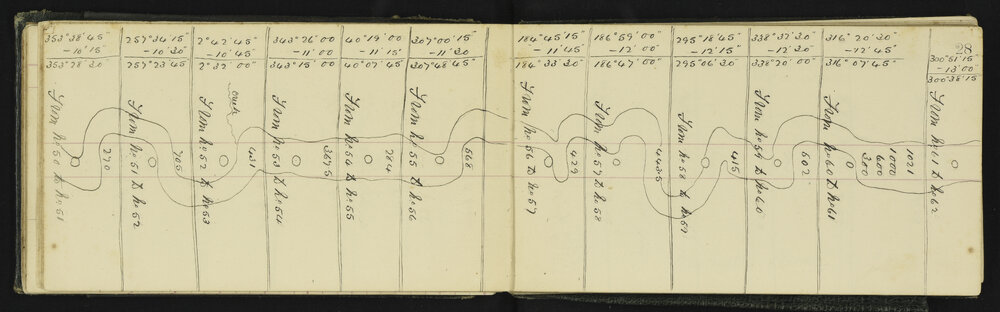 28
353°38'45"
-10'15"
353°28'30"
From No 50 to No 51
270
257°34'15"
-10'30"
257°23'45"
From No 51 to No 52
705
2°42'45"
-10'45"
2°32'00"
creek
From No 52 to No 53
431
343°26'00"
-11'00
343°15'00"
From No 53 to No 54
367.5
40°19'00
-11'15"
40°07'45"
From No 54 to No 55
784
-11'30
307°48'45"
From No 55 to No 56
568
184°45'15"
-11'45"
184°33'30"
From No 56 to No 57
429
186°59'00"
-12'00"
186°47'00"
From No 57 to No 58
443.5
295°18'45"
-12'15"
295°06'30"
From No 58 to No 59
415
338°32'30"
-12'30"
338°20'00"
From No 59 to No 60
602
316°20'30"
-12'45"
316°07'45"
From No 60 to No 61
300
600
1000
1021
300°51'15
-13'00"
300°38'15
From No 61 to No 62